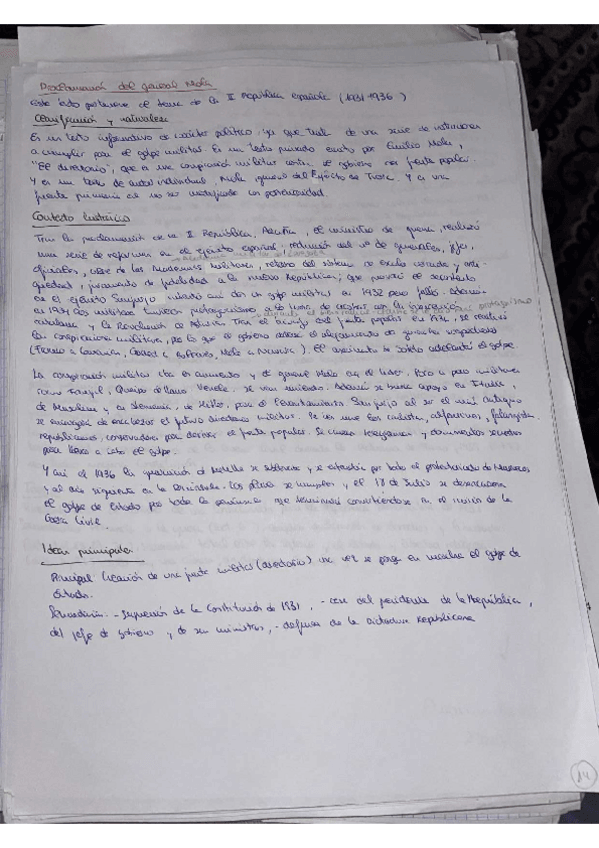 Proclamación del general Mola
Este texto pertenece al tema de la II República española (1931-1936)
Clasificación y naturaleza
Es un texto informativo de carácter político, ya que trata de una serie de instrucciones
a cumplir para el golpe militar. Es un texto privado escrito por Emilio Mola,
"El directorio", que es una conspiración militar contra el gobierno del frente popular.
Y es un texto de autor individual, Mola general del Ejército de Tierra. Y es una
fuente primaria al no ser modificado con posterioridad.
Contexto histórico
Tras la proclamación de la II República, Azaña, el ministro de guerra, realizó
una serie de reformas en el ejército español, reducción del nº de generales, jefes,
oficiales, cierre de las Academias Militares, del sistema de
juramento de fidelidad a la nueva República, que provocó el descontento
en el ejército Sanjurjo intentó así dar un golpe militar en 1932 pero falló. Además
en 1934 los militares tuvieron protagonismo a la hora de acabar con la insurrección
catalana y la Revolución de Asturias. Tras el triunfo del frente popular en 1936, se
la conspiración militar, por lo que el gobierno ordenó el alejamiento de generales sospechosos
(Franco a Canarias, Goded a Baleares, Mola a Navarra). El asesinato de Sotelo adelantó el golpe.
La conspiración militar iba en aumento y el general Mola era el líder. Poco a poco militares
como Fanjul, Queipo de Llano, Varela. Se van uniendo. Además se busca apoyo en Italia,
de Mussolini y en Alemania, de Hitler, para el levantamiento. Sanjurjo al ser el más antiguo
se encargará de encabezar el futuro directorio militar. Se les unen los carlistas, alfonsinos, falangistas,
republicanos, conservadores para derrocar el frente popular. Se crearon telegramas y documentos secretos
para llevar a cabo el golpe.
Y así el 1936 la guarnición de Melilla se sublevó y se extendió por todo el protectorado de Marruecos
y al día siguiente en la Península. Los planes se cumplen y el 18 de Julio se desencadena
el golpe de Estado por toda la península que terminará convirtiéndose en el inicio de la
Guerra Civil.
Ideas principales
Principal: Creación de una junta militar (directorio) una vez se ponga en marcha el golpe de
Estado.
Secundarias: - Supresión de la Constitución de 1931, - cese del presidente de la República,
del jefe de gobierno y de sus ministros, - defensa de la dictadura Republicana
14